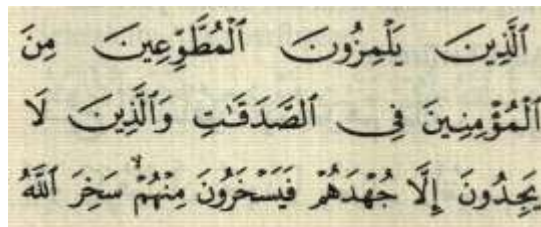 ٱلَّذِينَ يَلْمِزُونَ ٱلْمُطَّوِّعِينَ مِنَ
ٱلْمُؤْمِنِينَ فِى ٱلصَّدَقَٰتِ وَٱلَّذِينَ لَا
يَجِدُونَ إِلَّا جُهْدَهُمْ فَيَسْخَرُونَ مِنْهُمْ ۙ سَخِرَ ٱللَّهُ